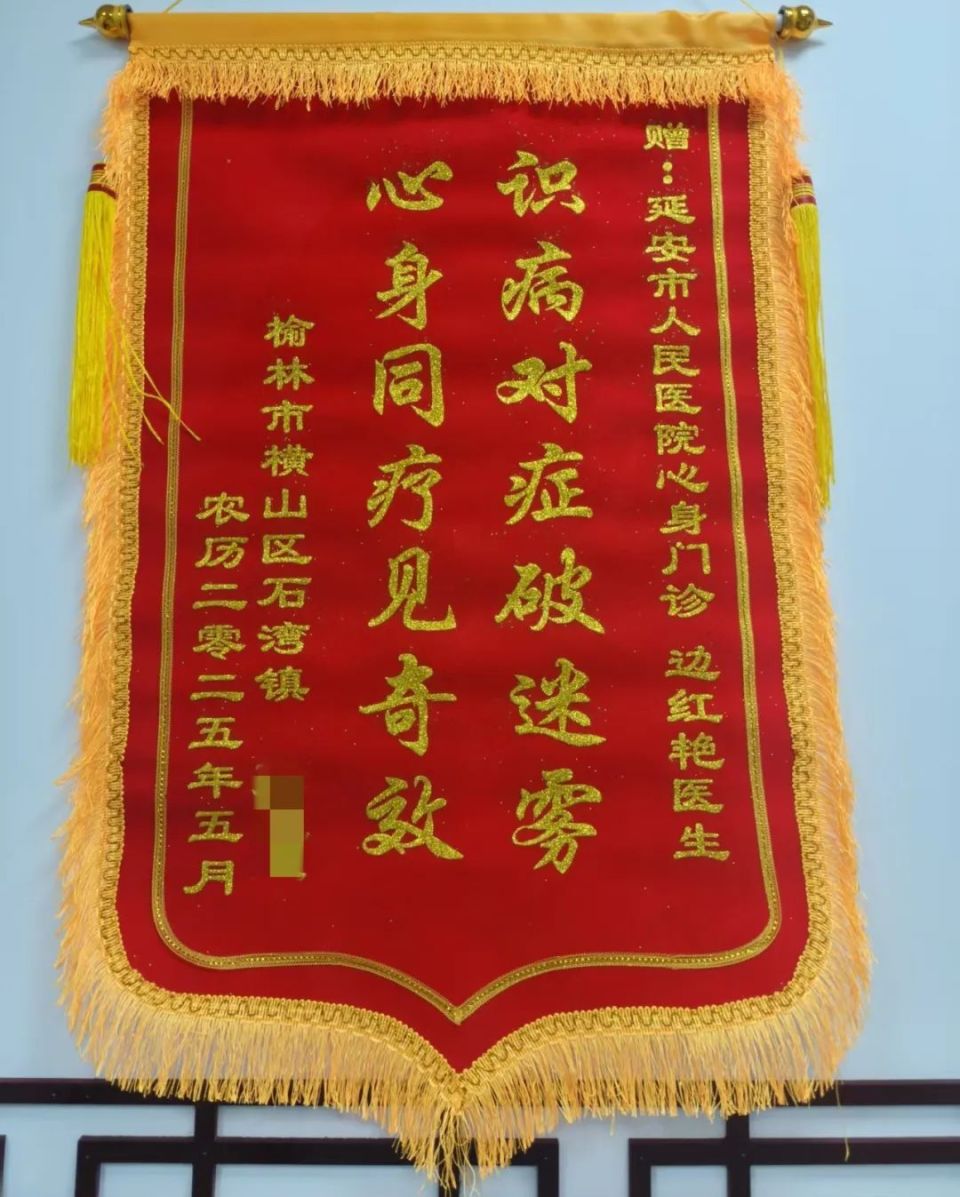 赠：延安市人民医院心身门诊 边红艳医生
识病对症破迷雾
心身同疗见奇效
榆林市横山区石湾镇
农历二零二五年五月